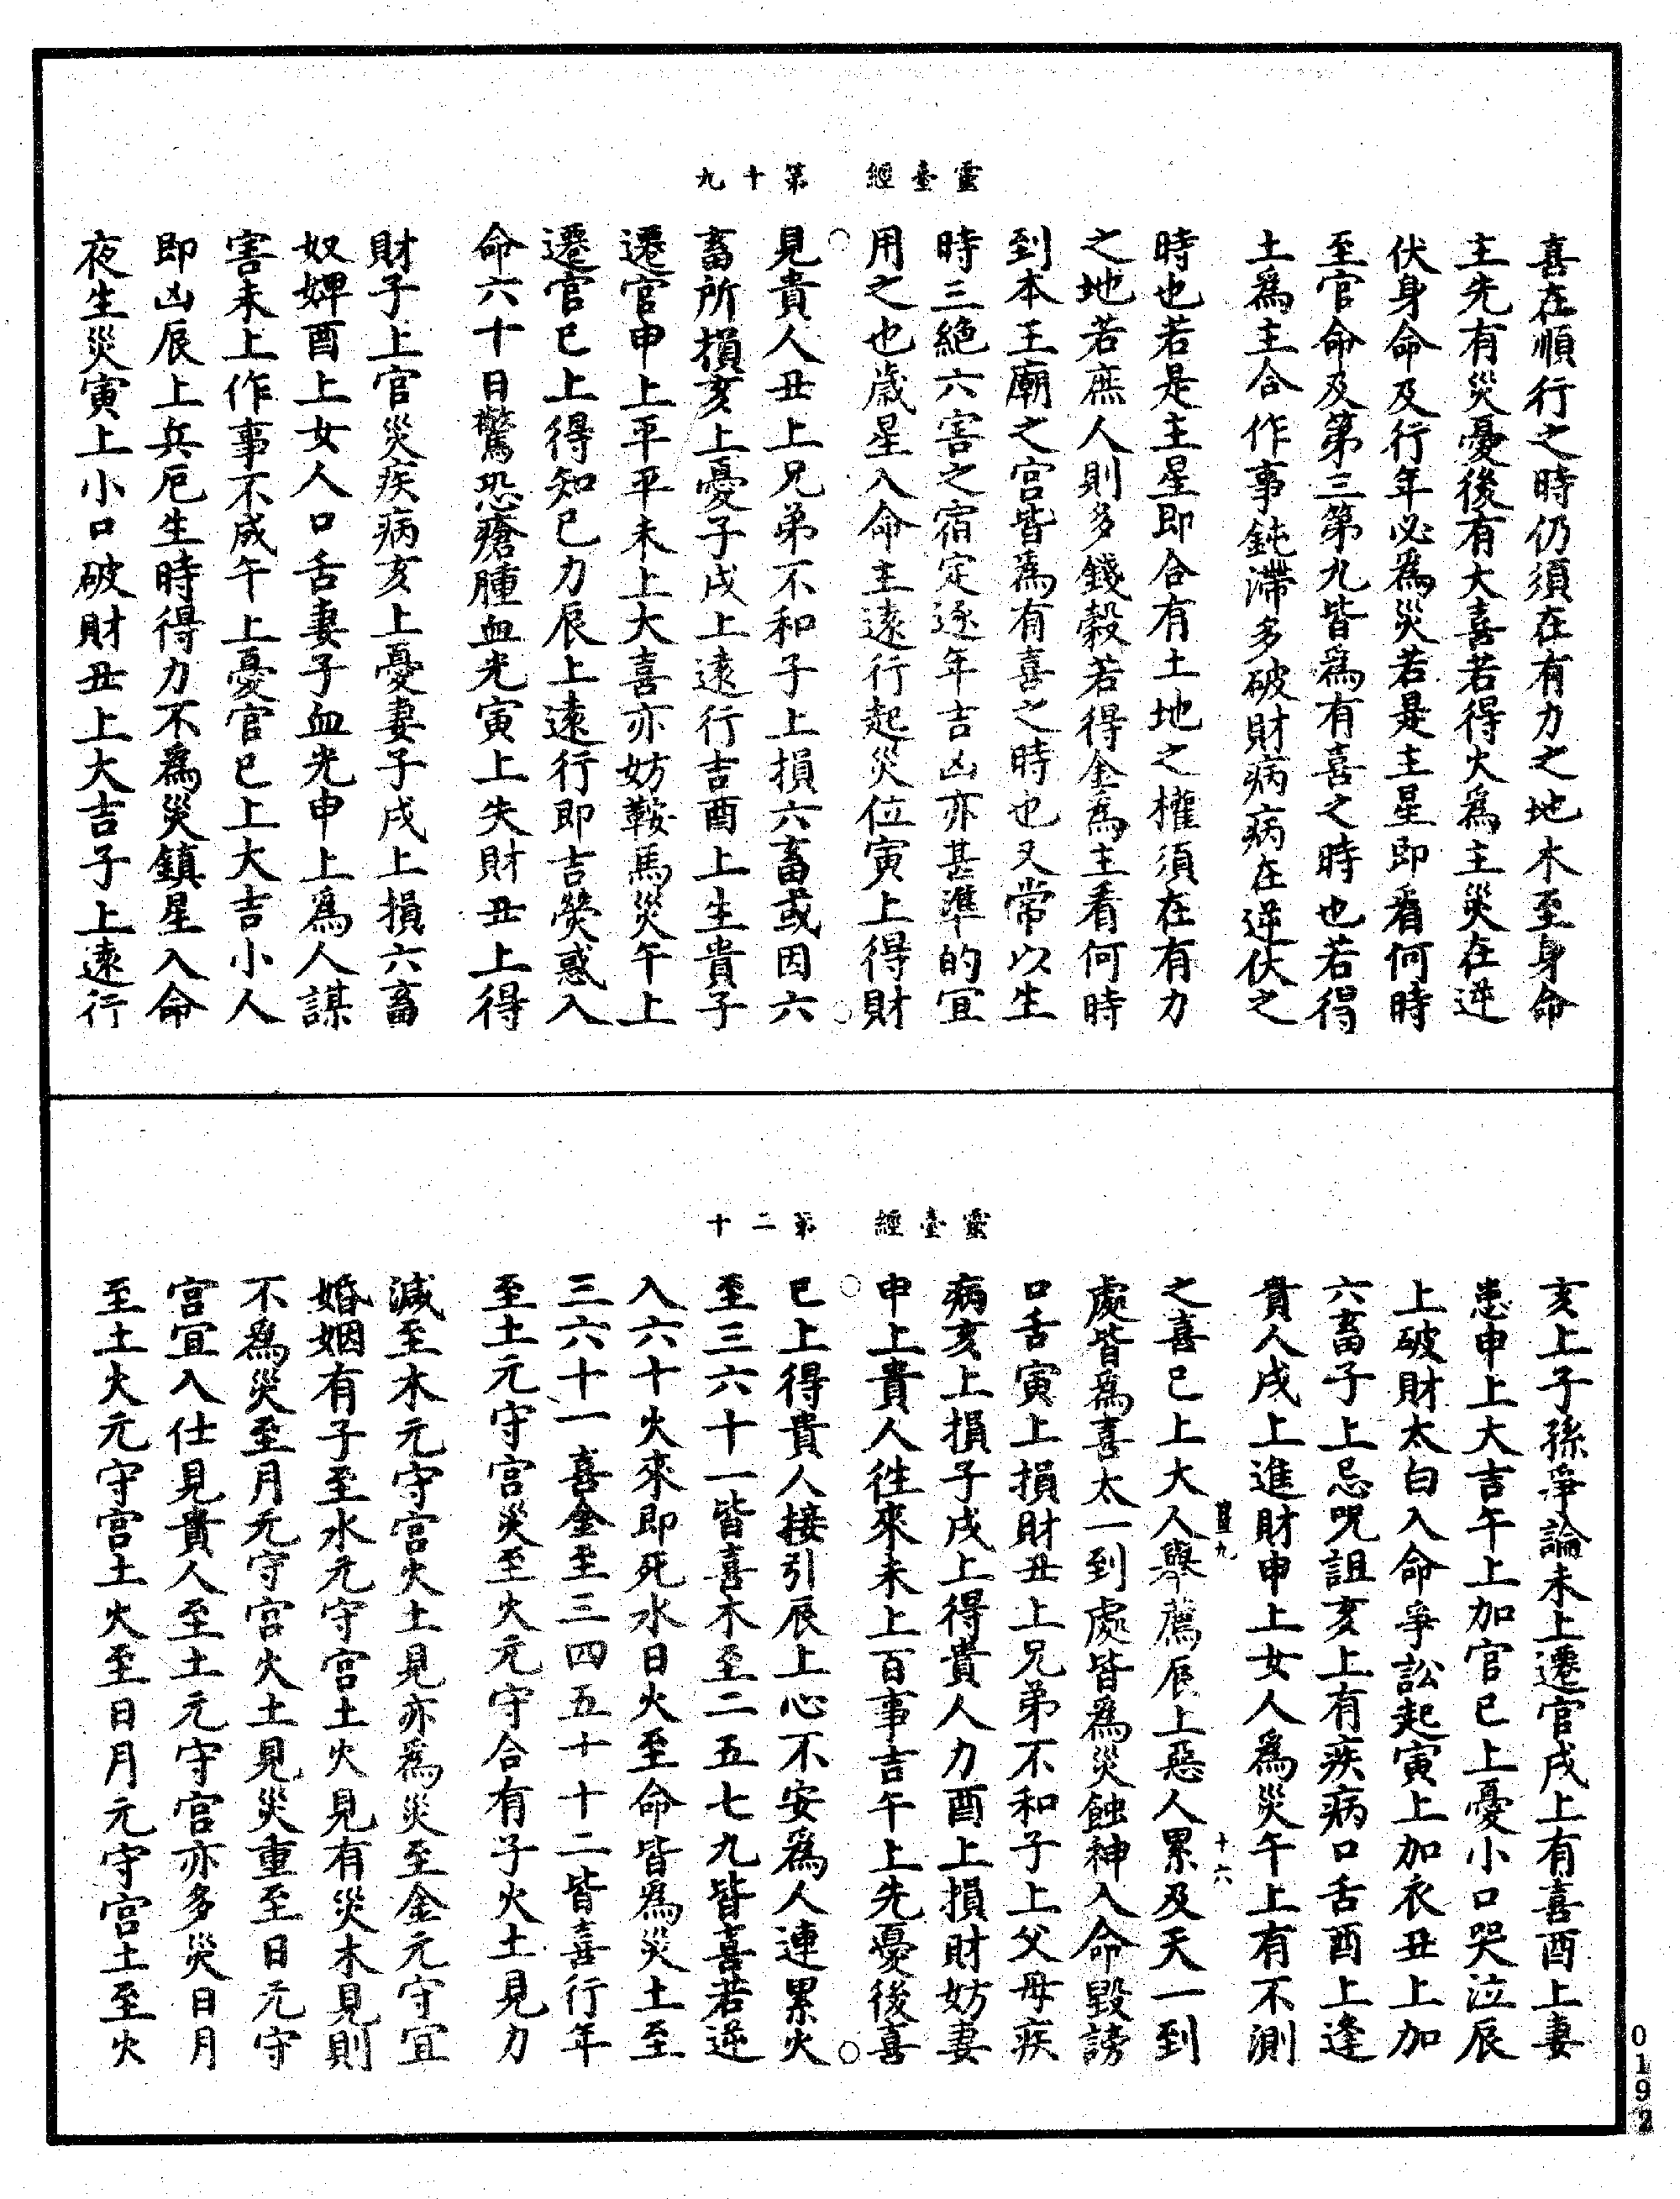 靈臺經　第十九
喜在順行之時仍須在有力之地木至身命
主先有災憂後有大喜若得火爲主災在逆
伏身命及行年必爲災若是主星即看何時
至官命及第三第九皆爲有喜之時也若得
土爲主合作事鈍滯多破財病病在逆伏之
時也若是主星即合有土地之權須在有力
之地若庶人則多錢穀若得金爲主看何時
到本王廟之宮皆爲有喜之時也又常以生
時三絕六害之宿定逐年吉凶亦甚準的宜
用之也歲星入命主遠行起災位寅上得財
見貴人丑上兄弟不和子上損六畜或因六
畜所損亥上憂子戌上遠行吉酉上生貴子
遷官申上平平未上大喜亦妨鞍馬災午上
遷官巳上得知己力辰上遠行即吉熒惑入
命六十日驚恐瘡腫血光寅上失財丑上得
財子上官災疾病亥上憂妻子戌上損六畜
奴婢酉上女人口舌妻子血光申上爲人謀
害未上作事不成午上憂官巳上大吉小人
即凶辰上兵厄生時得力不爲災鎮星入命
夜生災寅上小口破財丑上大吉子上遠行
靈臺經　第二十
亥上子孫爭論未上遷官戌上有喜酉上妻
患申上大吉午上加官巳上憂小口哭泣辰
上破財太白入命爭訟起寅上加衣丑上加
六畜子上忌呪詛亥上有疾病口舌酉上逢
貴人戌上進財申上女人爲災午上有不測
之喜巳上大人舉薦辰上惡人累及天一到
處皆爲喜太一到處皆爲災蝕神入命毀謗
口舌寅上損財丑上兄弟不和子上父母疾
病亥上損子戌上得貴人力酉上損財妨妻
申上貴人往來未上百事吉午上先憂後喜
巳上得貴人接引辰上心不安爲人連累火
至三六十一皆喜木至二五七九皆喜若逆
入六十火來即死水日火至命皆爲災土至
三六十一喜金至三四五十十二皆喜行年
至土元守宮災至火元守合有子火土見力
減至木元守宮火土見亦爲災至金元守宜
婚姻有子至水元守宮土火見有災木見則
不爲災至月元守宮火土見災重至日元守
宮宜入仕見貴人至土元守宮亦多災日月
至土火元守宮土火至日月元守宮土至火
九
十六
0192